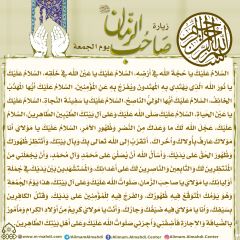 زيارة
صاحب الزمان
يوم الجمعة
بسم الله الرحمن الرحيم
السلام عليك يا حجة الله في أرضه، السلام عليك يا عين الله في خلقه، السلام عليك
يا نور الله الذي يهتدي به المهتدون ويفرج به عن المؤمنين، السلام عليك أيها المهذب
الخائف، السلام عليك أيها الولي الناصح، السلام عليك يا سفينة النجاة، السلام عليك يا
عين الحياة، السلام عليك صلى الله عليك وعلى آل بيتك الطيبين الطاهرين، السلام
عليك، عجل الله لك ما وعدك من النصر وظهور الأمر، السلام عليك يا مولاي، أنا
مولاك عارف بأولاك وأخراك، أتقرب إلى الله تعالى بك وبآل بيتك، وأنتظر ظهورك
وظهور الحق على يديك، وأسأل الله أن يصلي على محمد وآل محمد، وأن يجعلني من
المنتظرين لك والتابعين والناصرين لك على أعدائك، والمستشهدين بين يديك في جملة
أوليائك، يا مولاي يا صاحب الزمان، صلوات الله عليك وعلى آل بيتك، هذا يوم الجمعة
وهو يومك المتوقع فيه ظهورك، والفرج فيه للمؤمنين على يديك، وقتل الكافرين
بسيفك، وأنا يا مولاي فيه ضيفك وجارك، وأنت يا مولاي كريم من أولاد الكرام ومأمور
بالضيافة والإجارة فأضفني وأجرني، صلوات الله عليك وعلى أهل بيتك الطاهرين